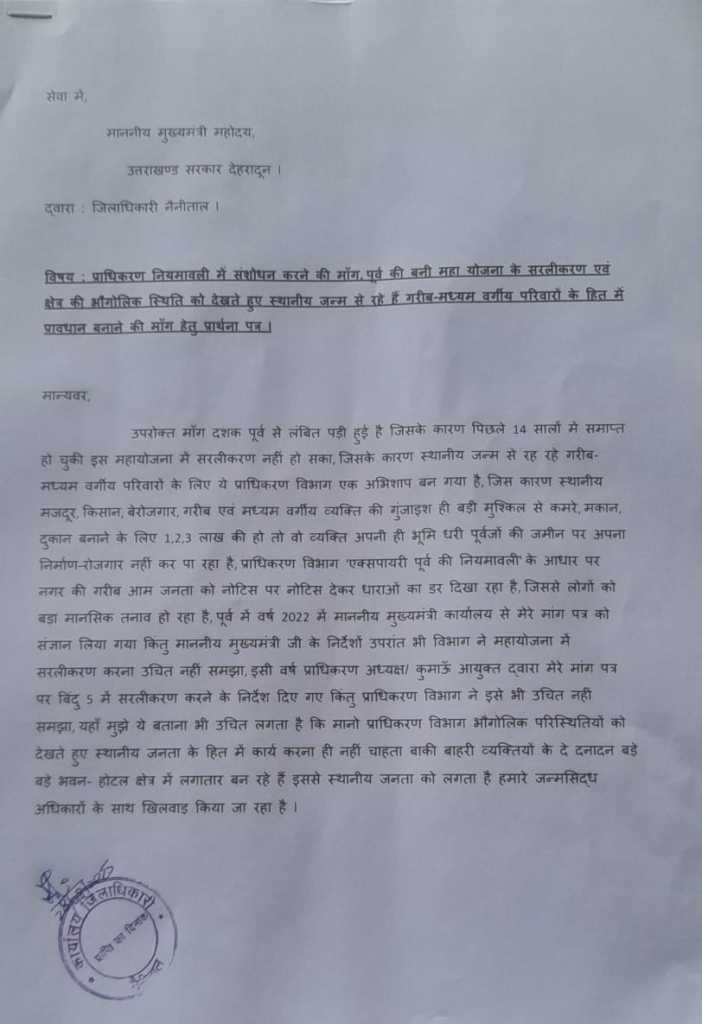 सेवा में,
माननीय मुख्यमंत्री महोदय,
उत्तराखण्ड सरकार देहरादून ।
द्वारा : जिलाधिकारी नैनीताल ।
विषय : प्राधिकरण नियमावली में संशोधन करने की माँग, पूर्व की बनी महा योजना के सरलीकरण एवं
क्षेत्र की भौगोलिक स्थिति को देखते हुए स्थानीय जन्म से रहे हैं गरीब-मध्यम वर्गीय परिवारों के हित में
प्रावधान बनाने की माँग हेतु प्रार्थना पत्र ।
मान्यवर,
उपरोक्त माँग दशक पूर्व से लंबित पड़ी हुई है जिसके कारण पिछले 14 सालों में समाप्त
हो चुकी इस महायोजना में सरलीकरण नहीं हो सका, जिसके कारण स्थानीय जन्म से रह रहे गरीब-
मध्यम वर्गीय परिवारों के लिए ये प्राधिकरण विभाग एक अभिशाप बन गया है, जिस कारण स्थानीय
मजदूर, किसान, बेरोजगार, गरीब एवं मध्यम वर्गीय व्यक्ति की गुंजाइश ही बड़ी मुश्किल से कमरे, मकान,
दुकान बनाने के लिए 1,2,3 लाख की हो तो वो व्यक्ति अपनी ही भूमि धरी पूर्वजों की जमीन पर अपना
निर्माण-रोजगार नहीं कर पा रहा है, प्राधिकरण विभाग 'एक्सपायरी पूर्व की नियमावली' के आधार पर
नगर की गरीब आम जनता को नोटिस पर नोटिस देकर धाराओं का डर दिखा रहा है, जिससे लोगों को
बड़ा मानसिक तनाव हो रहा है, पूर्व में वर्ष 2022 में माननीय मुख्यमंत्री कार्यालय से मेरे मांग पत्र को
संज्ञान लिया गया किंतु माननीय मुख्यमंत्री जी के निर्देशों उपरांत भी विभाग ने महायोजना में
सरलीकरण करना उचित नहीं समझा, इसी वर्ष प्राधिकरण अध्यक्ष/ कुमाऊँ आयुक्त द्वारा मेरे मांग पत्र
पर बिंदु 5 में सरलीकरण करने के निर्देश दिए गए किंतु प्राधिकरण विभाग ने इसे भी उचित नहीं
समझा, यहाँ मुझे ये बताना भी उचित लगता है कि मानो प्राधिकरण विभाग भौगोलिक परिस्थितियों को
देखते हुए स्थानीय जनता के हित में कार्य करना ही नहीं चाहता बाकी बाहरी व्यक्तियों के दे दनादन बड़े
बड़े भवन- होटल क्षेत्र में लगातार बन रहे हैं इससे स्थानीय जनता को लगता है हमारे जन्मसिद्ध
अधिकारों के साथ खिलवाड़ किया जा रहा है ।
कार्यालय जिलाधिकारी
प्राप्ति का दिनांक